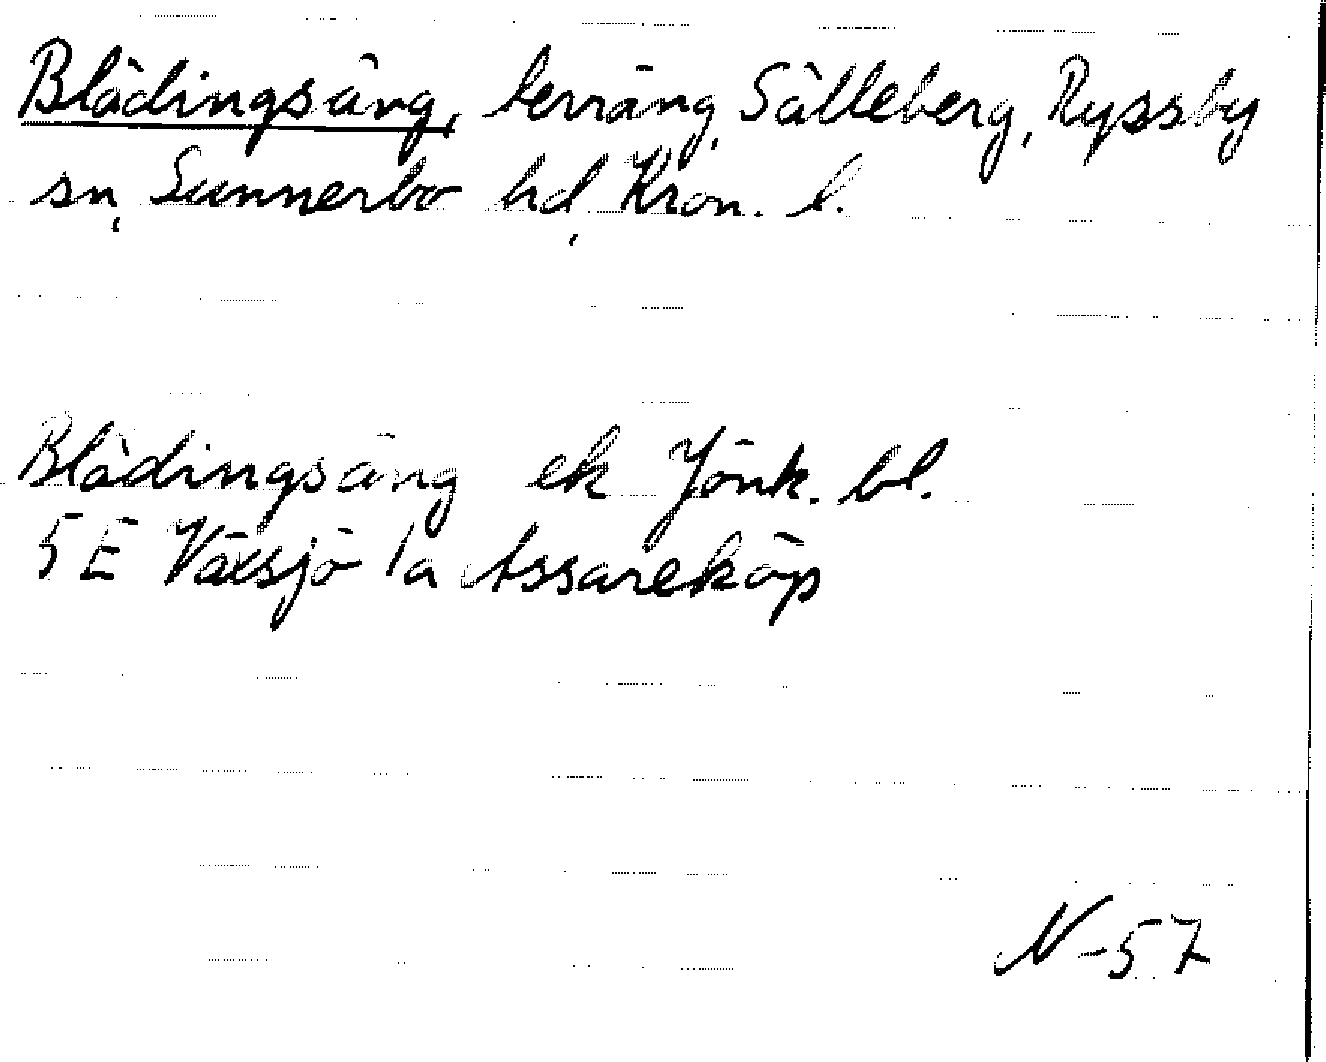 Blädingsäng, terräng, Sälleberg, Ryssby
sn, Sunnerbo hd, Kron. l.
Blädingsäng ek Jönk. bl.
5 E Växsjö 1a Assareköp
N-57